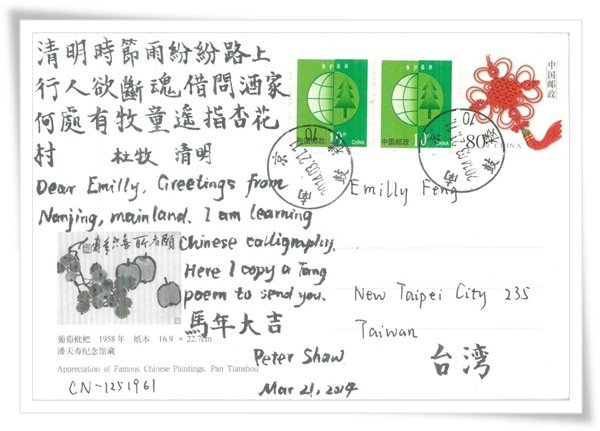 清明時節雨紛紛路上
行人欲斷魂借問酒家
何處有牧童遥指杏花
村 杜牧 清明
Dear Emilly, Greetings from
Nanjing, mainland. I am learning
Chinese calligraphy.
Here I copy a Tang
poem to send you.
馬年大吉
Peter Shaw
Mar 21, 2014
葡萄枇杷 1958年 纸本 16.9 × 22.7cm
潘天寿纪念馆藏
Appreciation of Famous Chinese Paintings, Pan Tianshou
CN-1251961
中国邮政
CHINA
中国邮政
10分
CHINA
中国邮政
80分
CHINA
2014.03.21
南京
Emilly Feng
New Taipei City 235
Taiwan
台湾